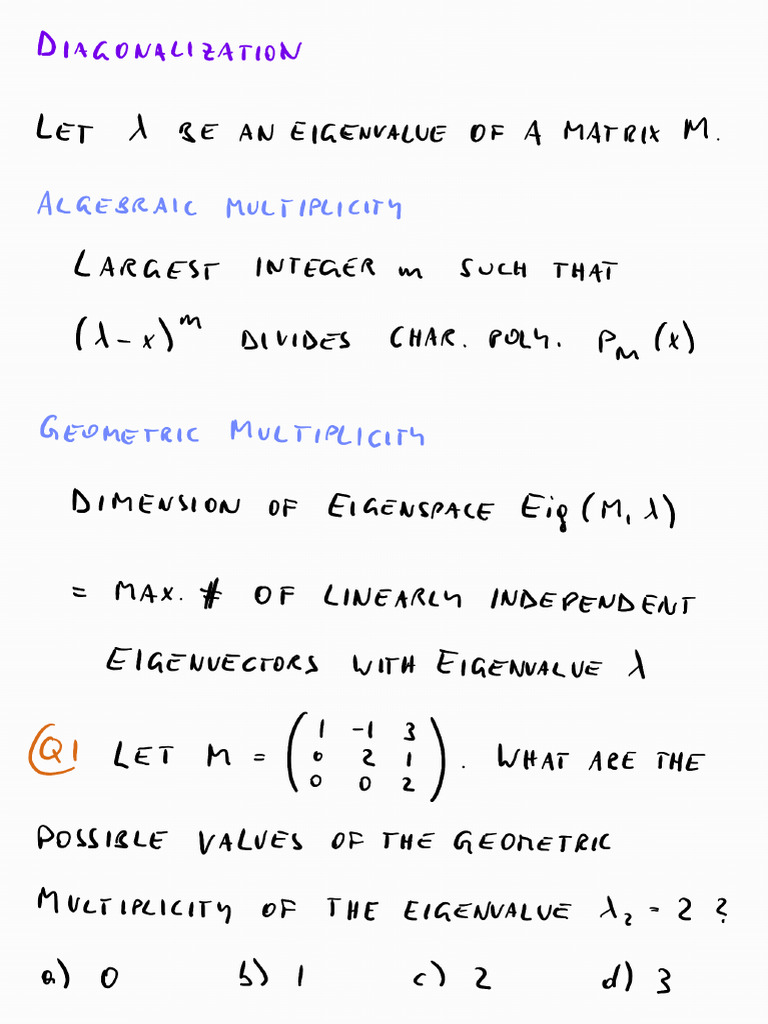 DIAGONALIZATION
LET λ BE AN EIGENVALUE OF A MATRIX M.
ALGEBRAIC MULTIPLICITY
LARGEST INTEGER m SUCH THAT
(λ-x)^m DIVIDES CHAR. POLY. P_M (x)
GEOMETRIC MULTIPLICITY
DIMENSION OF EIGENSPACE Eig (M, λ)
= MAX. # OF LINEARLY INDEPENDENT
EIGENVECTORS WITH EIGENVALUE λ
Q1 LET M = (1 -1 3; 0 2 1; 0 0 2). WHAT ARE THE
POSSIBLE VALUES OF THE GEOMETRIC
MULTIPLICITY OF THE EIGENVALUE λ₂ = 2 ?
a) 0 b) 1 c) 2 d) 3